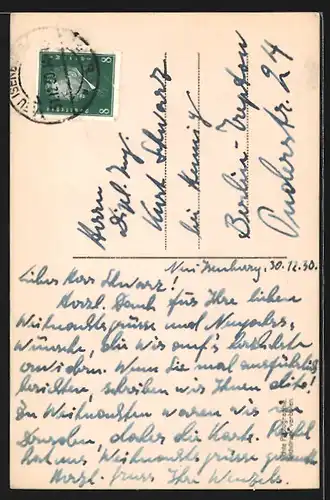 Herrn
Dipl. Ing.
Kurt Schwarz
bei Hennig
Berlin-Treptow
Puderstr. 24
8 8
Neu Isenburg, 30.12.30.
Lieber Herr Schwarz!
Herzl. Dank für Ihre lieben
Weihnachtsgrüsse und Neujahrs-
wünsche, die wir auf's herzlichste
erwidern. Wenn Sie mal ausführlich
berichten, schreiben wir Ihnen dito!
In Weihnachten waren wir in
daher die Karte.
hat uns Weihnachtsgrüsse gesandt
Herzl. Gruss Ihre Wenzels.